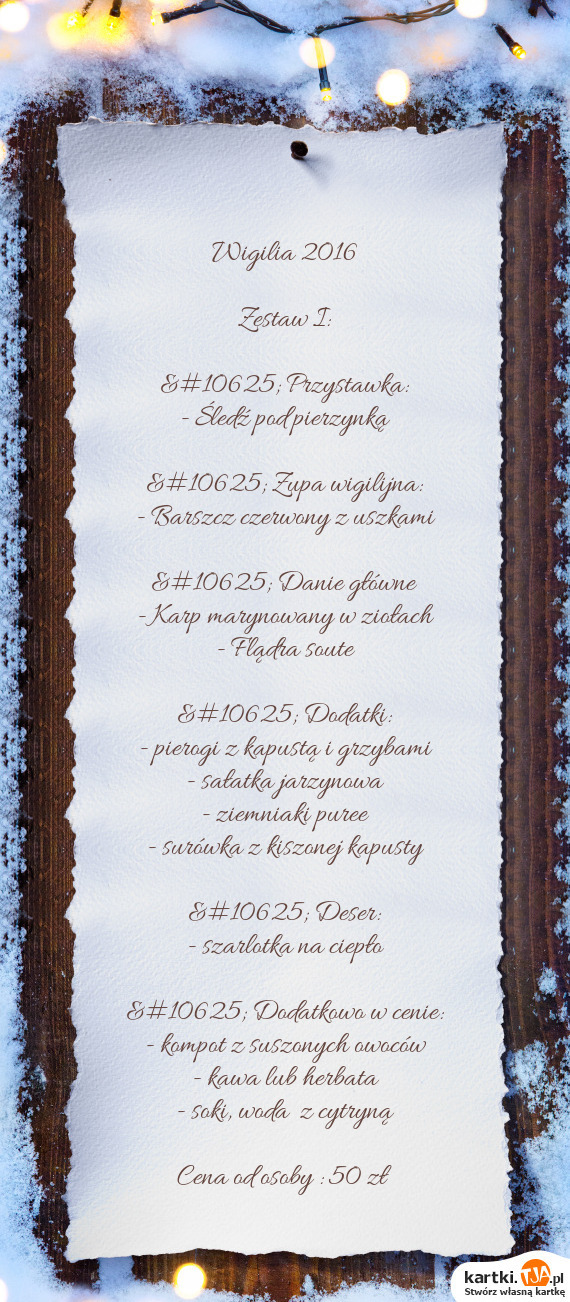 Wigilia 2016
Zestaw I:
&#10625; Przystawka:
- Śledź pod pierzynką
&#10625; Zupa wigilijna:
- Barszcz czerwony z uszkami
&#10625; Danie główne
- Karp marynowany w ziołach
- Flądra soute
&#10625; Dodatki:
- pierogi z kapustą i grzybami
- sałatka jarzynowa
- ziemniaki puree
- surówka z kiszonej kapusty
&#10625; Deser:
- szarlotka na ciepło
&#10625; Dodatkowo w cenie:
- kompot z suszonych owoców
- kawa lub herbata
- soki, woda  z cytryną
Cena od osoby : 50 zł
kartki.TJA.pl
Stwórz własną kartkę